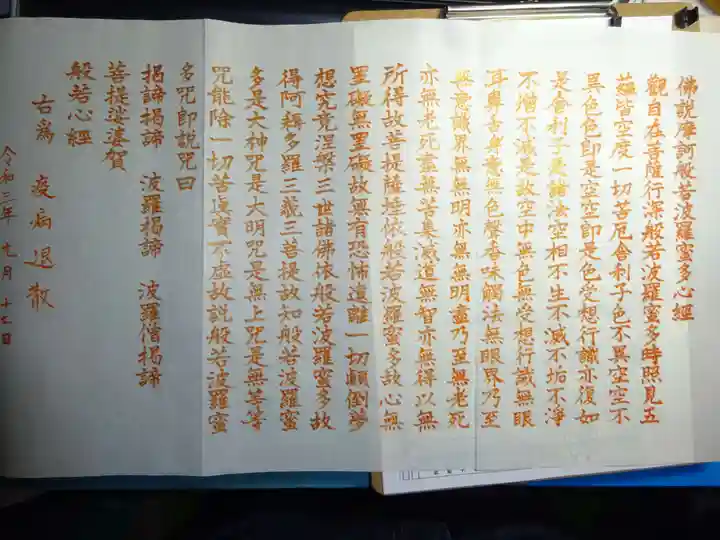 佛説摩訶般若波羅蜜多心經
觀自在菩薩行深般若波羅蜜多時照見五
蘊皆空度一切苦厄舍利子色不異空空不
異色色即是空空即是色受想行識亦復如
是舍利子是諸法空相不生不滅不垢不淨
不增不減是故空中無色無受想行識無眼
耳鼻舌身意無色聲香味觸法無眼界乃至
無意識界無無明亦無無明盡乃至無老死
亦無老死盡無苦集滅道無智亦無得以無
所得故菩提薩埵依般若波羅蜜多故心無
罣礙無罣礙故無有恐怖遠離一切顛倒夢
想究竟涅槃三世諸佛依般若波羅蜜多故
得阿耨多羅三藐三菩提故知般若波羅蜜
多是大神咒是大明咒是無上咒是無等等
咒能除一切苦眞實不虛故説般若波羅蜜
多咒即説咒曰
揭諦揭諦 波羅揭諦 波羅僧揭諦
菩提娑婆賀
般若心經
右爲 疫病退散
令和三年 月 十七日